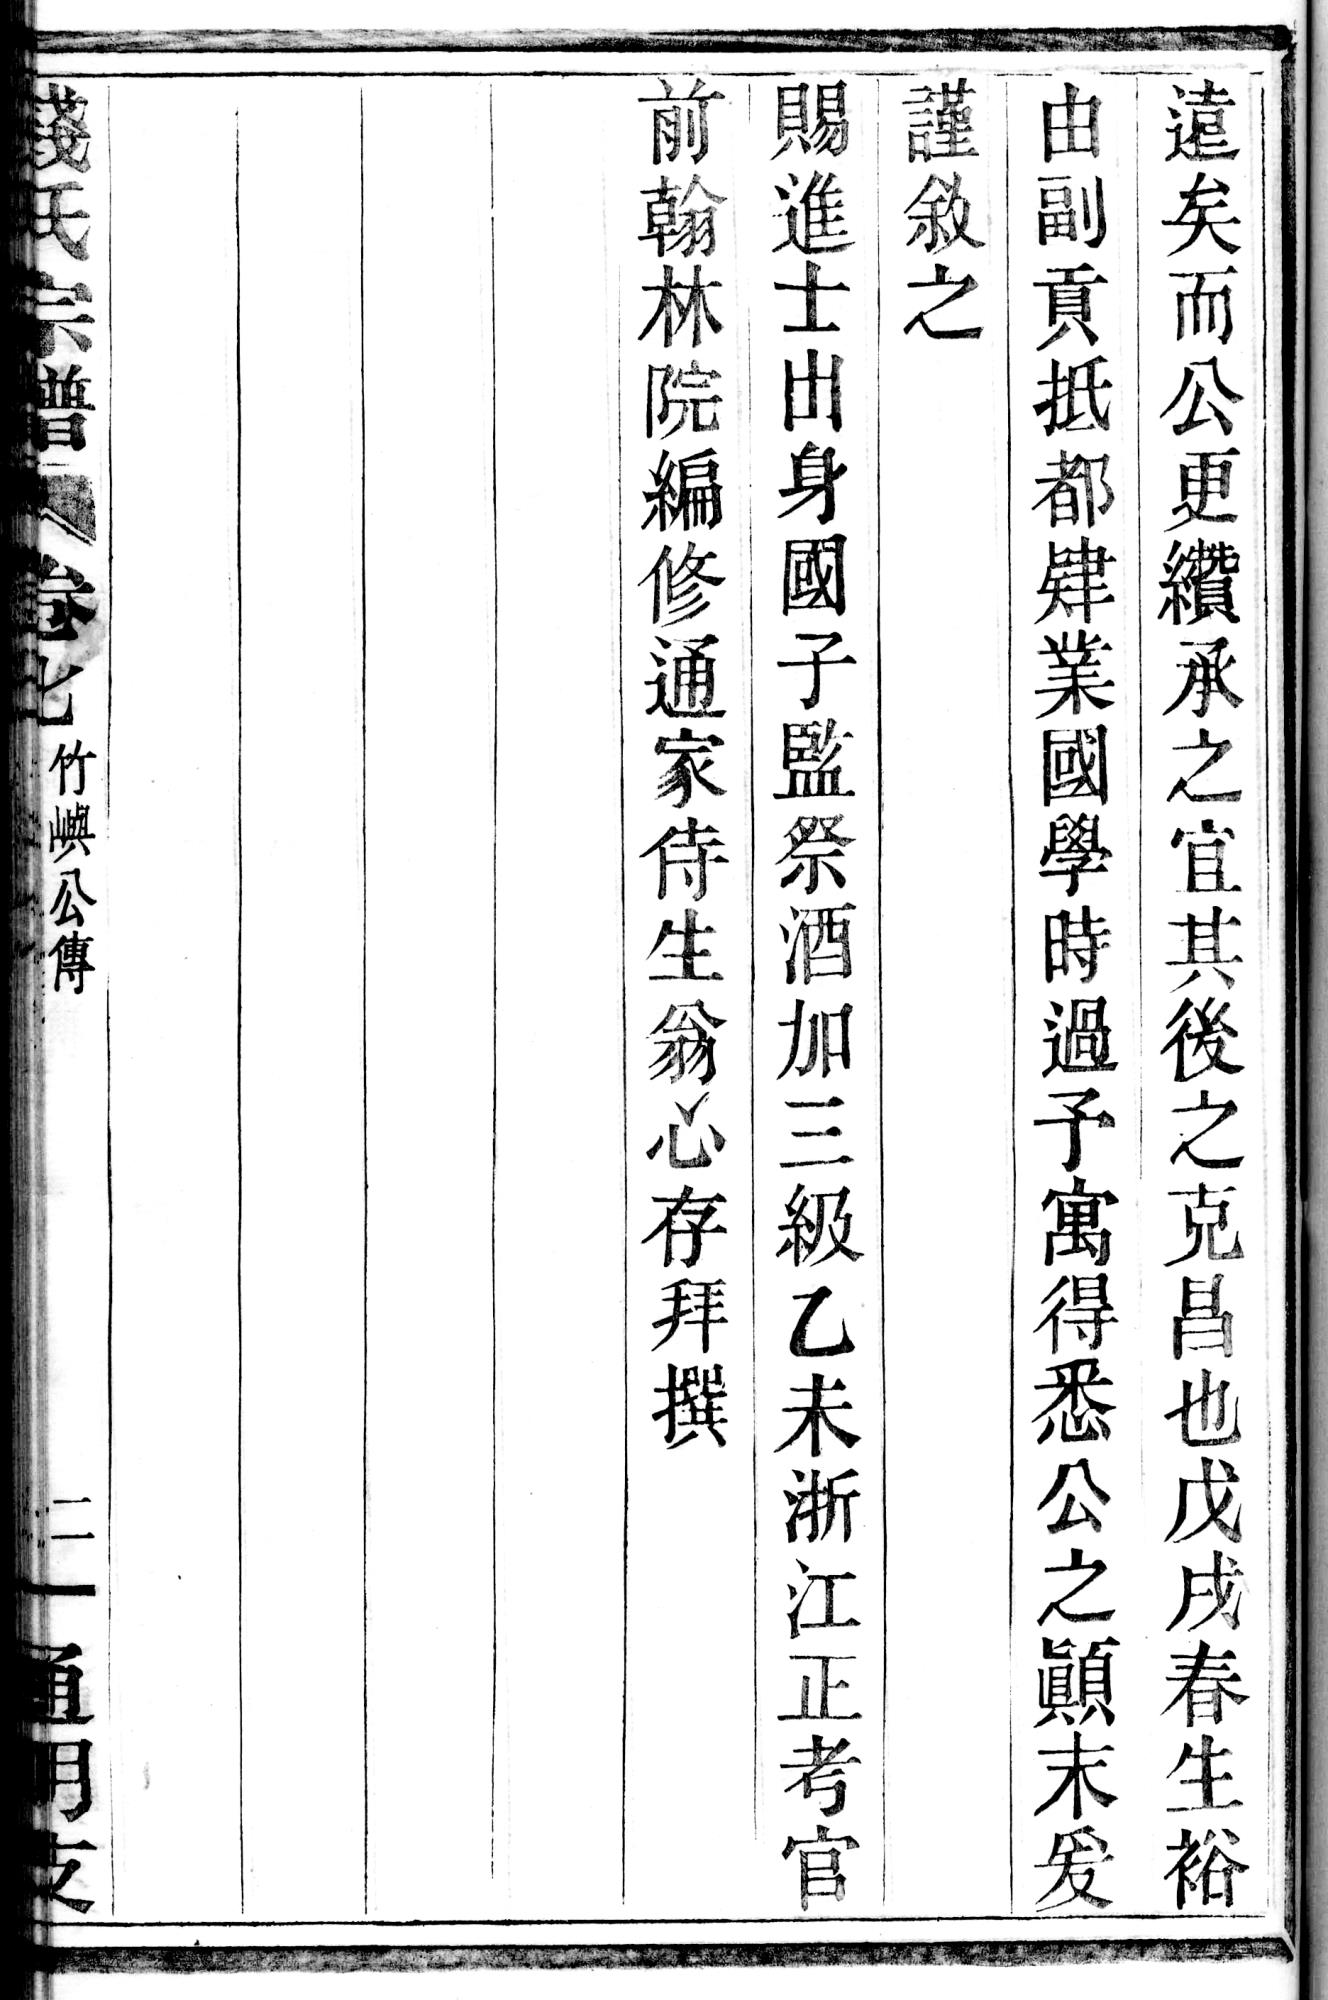 遠矣而公更纘承之宜其後之克昌也戊戌春生裕
由副貢抵都肄業國學時過予寓得悉公之顚末爰
謹敘之
賜進士出身國子監祭酒加三級乙未浙江正考官
前翰林院編修通家侍生翁心存拜撰
錢氏宗譜 卷七 竹嶼公傳 二 通明支